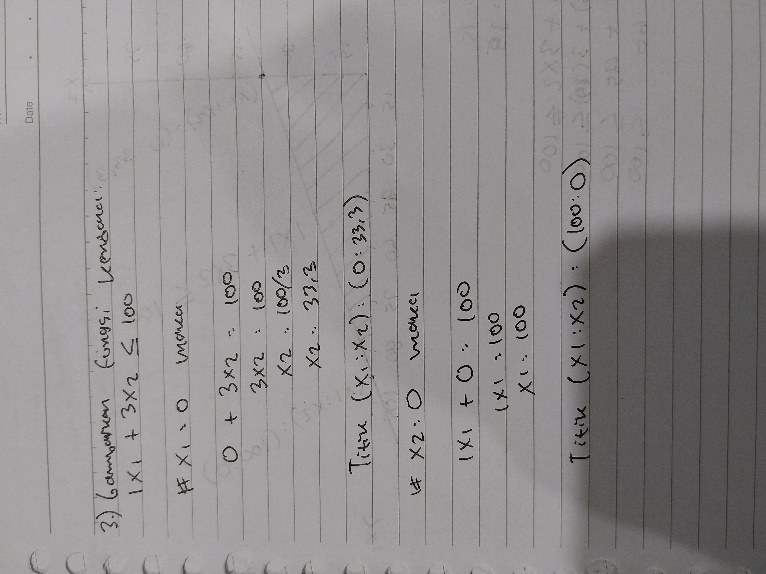 Date
3.) Gambarkan fungsi kendala:
1X1 + 3X2 ≤ 100
# X1 = 0 maka
0 + 3X2 = 100
3X2 = 100
X2 = 100/3
X2 = 33,3
Titik (X1:X2) : (0:33,3)
# X2 = 0 maka
1X1 + 0 = 100
1X1 = 100
X1 = 100
Titik (X1:X2) : (100:0)